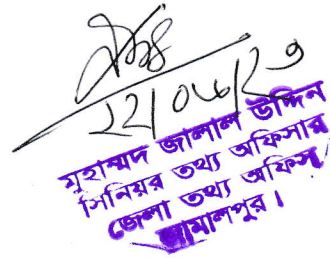 ২২/০৬/২৩
মুহাম্মদ জালাল উদ্দিন
সিনিয়র তথ্য অফিসার
জেলা তথ্য অফিস,
জামালপুর।